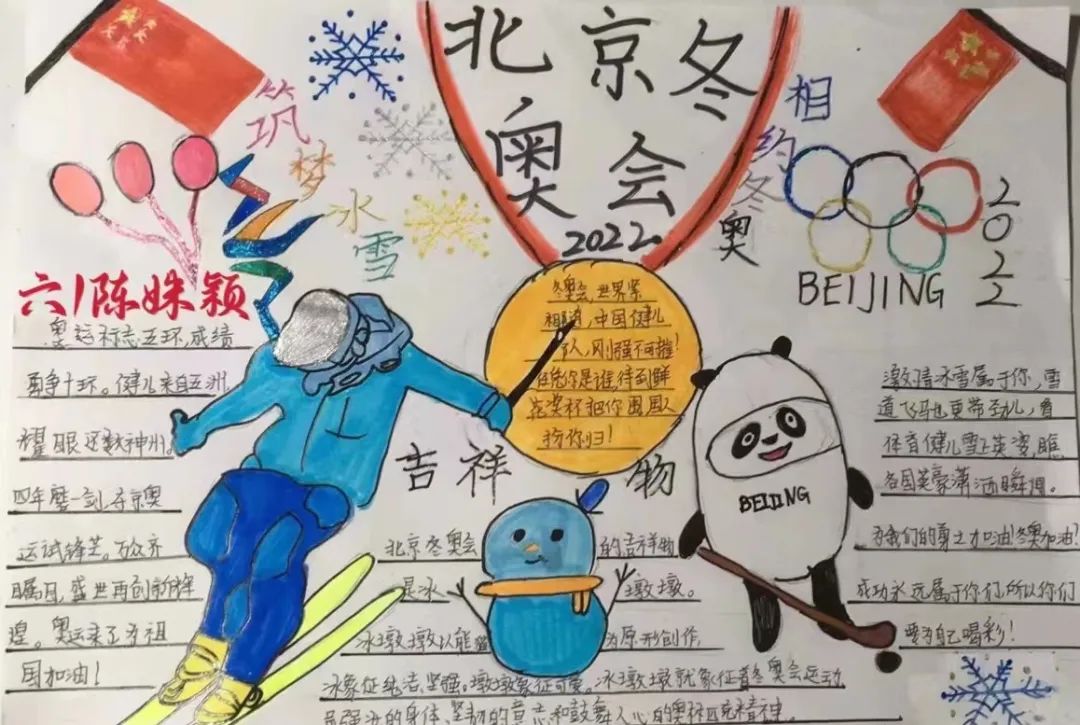 北京冬
奥会
2022
筑梦冰雪
相约冬奥
2022
BEIJING
六1陈姝颖
奥运标志五环,成绩
勇争十环。健儿来自五洲,
耀眼还数神州。
四年磨一剑,夺京奥
运试锋芒。万众齐
瞩目,盛世再创新辉
煌。奥运来了为祖
国加油!
冬奥会,世界紧
相连,中国健儿
人,刚强不可摧!
任凭你是谁,待到鲜
花奖杯把你围,国人
扮你归!
吉祥物
BEIJING
北京冬奥会的吉祥物
是冰墩墩。
冰墩墩以熊猫为原形创作,
冰象征纯洁,坚强。墩墩象征可爱,冰墩墩就象征着冬奥会运动
员强进的身体、坚韧的意志和鼓舞人心的奥林匹克精神。
激情冰雪属于你,雪
道飞马也更带劲儿,看
体育健儿雪上英姿,瞧
各国英豪潇洒瞬间。
为我们的勇士加油!冬奥加油!
成功永远属于你们,所以你们
要为自己喝彩!